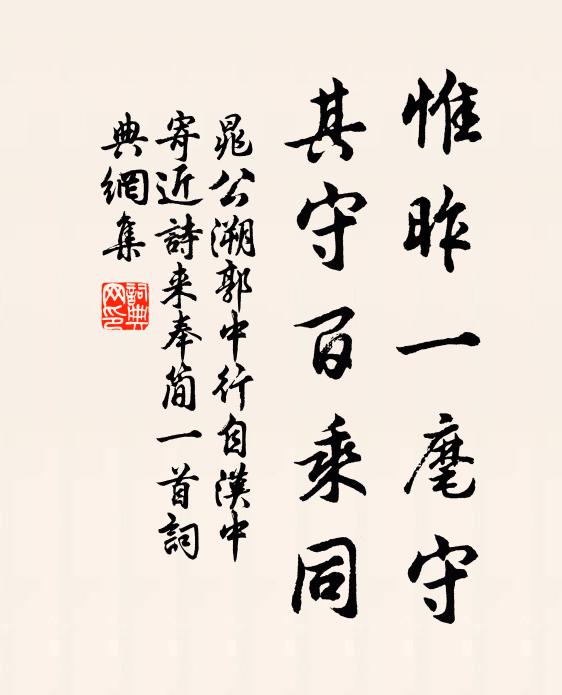 惟昨一麾守
其守百乘同
晁公溯郭中行自漢中
寄近詩来奉简一首詞
典網集
詞典网印